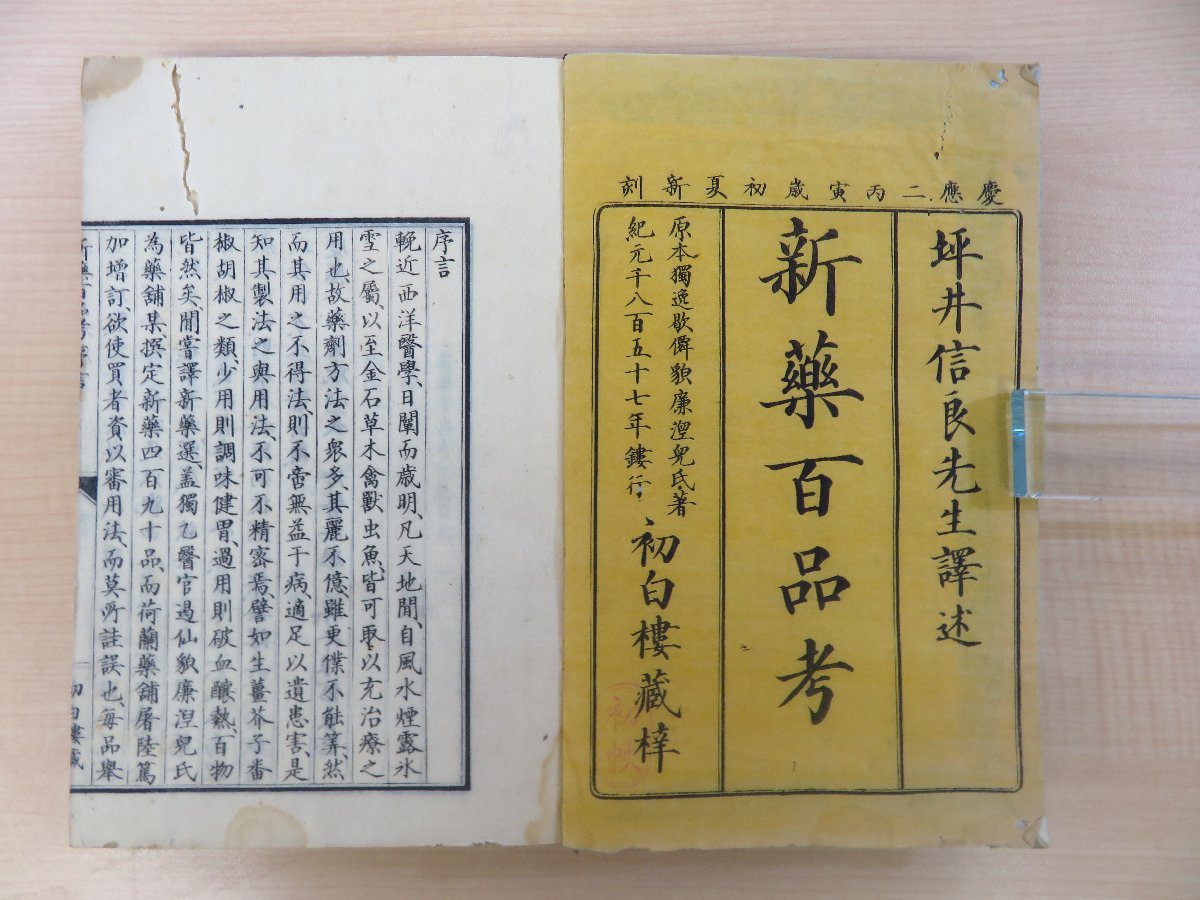 慶應二丙寅歳初夏新刻
坪井信良先生譯述
新藥百品考
原本獨逸歇僻貌廉涅兒氏著
紀元千八百五十七年鏤行
初白樓藏梓
序言
輓近西洋醫學、日闡而歳明、凡天地間、自風水煙露氷
雪之屬、以至金石草木禽獸虫魚、皆可取以充治療之
用也、故藥劑方法之衆多、其麗不億、雖更僕不能算、然
而其用之不得法、則不啻無益于病、適足以遺患害、是
知其製法之與用法、不可不精密焉、譬如生薑芥子番
椒胡椒之類、少用則調味健胃、過用則破血釀熱、百物
皆然矣、間嘗譯新藥選、盖獨乙醫官遏仙貌廉涅兒氏
為藥舖某、撰定新藥四百九十品、而荷蘭藥舖屠陸篤
加增訂、欲使買者資以審用法、而莫所詿誤也、每品舉
新藥百品考序言
初白樓藏